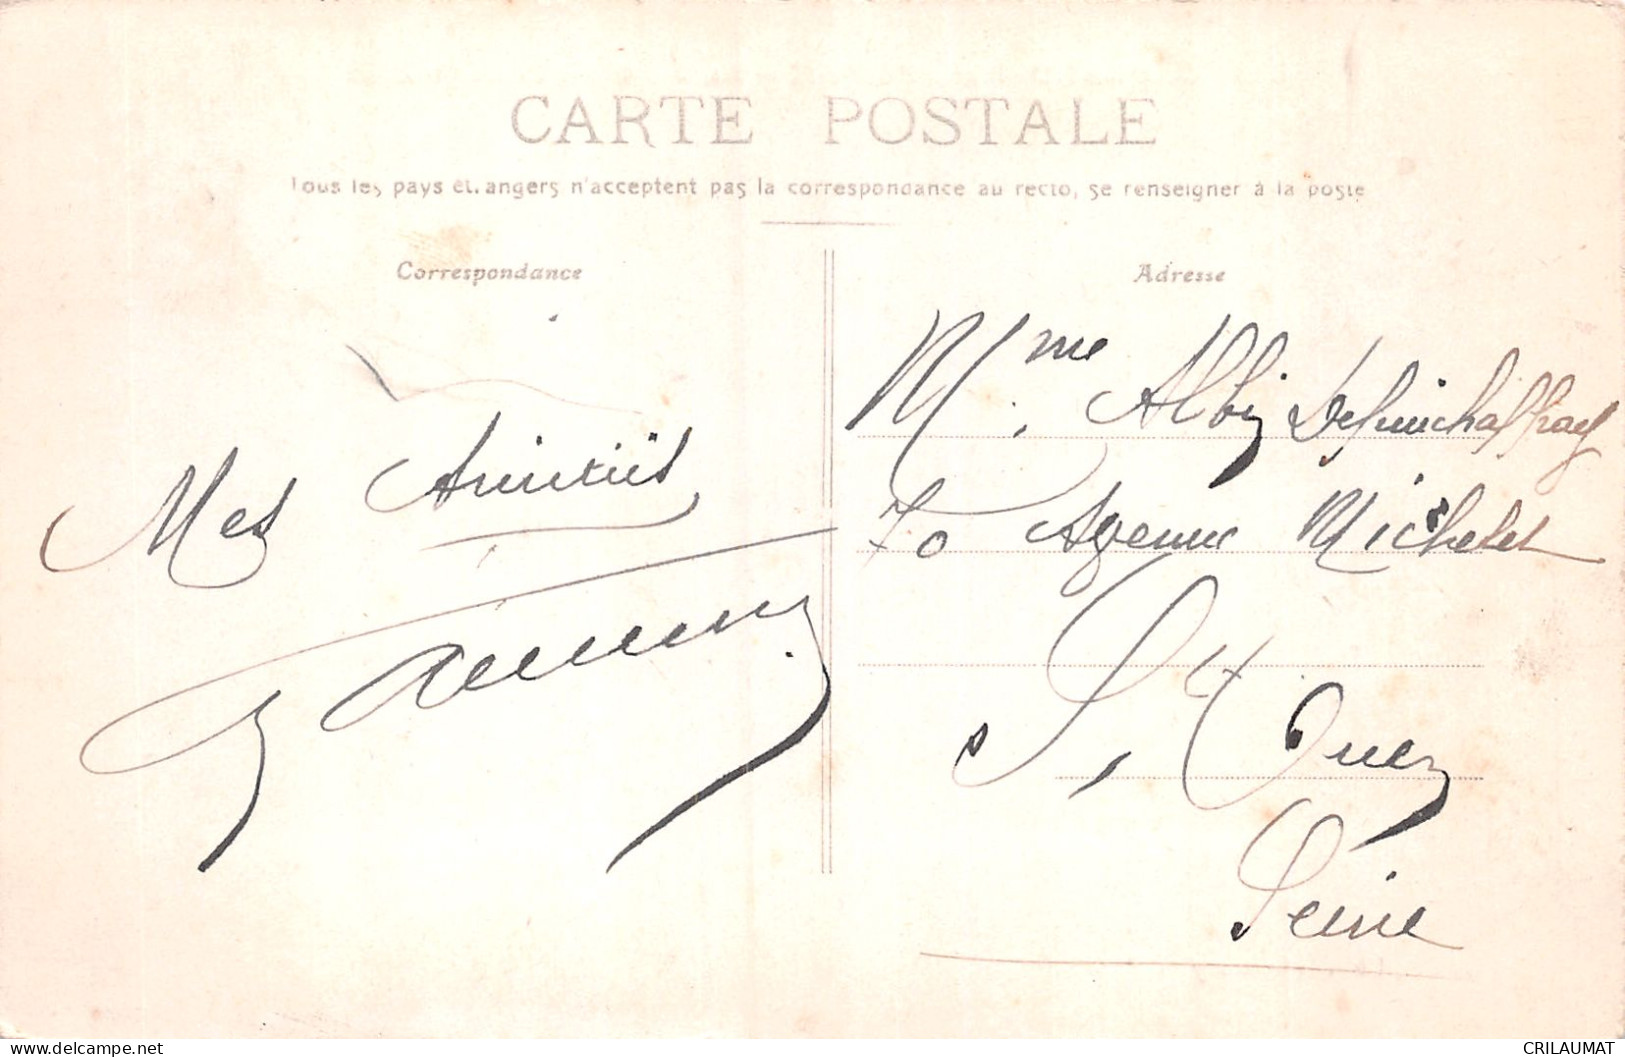 CARTE POSTALE
Tous les pays étrangers n'acceptent pas la correspondance au recto, se renseigner à la poste
Correspondance
Adresse
Mes Amitiés
Mme Albin
70 Avenue Michelet
St Ouen
Seine
delcampe.net
CRILAUMAT